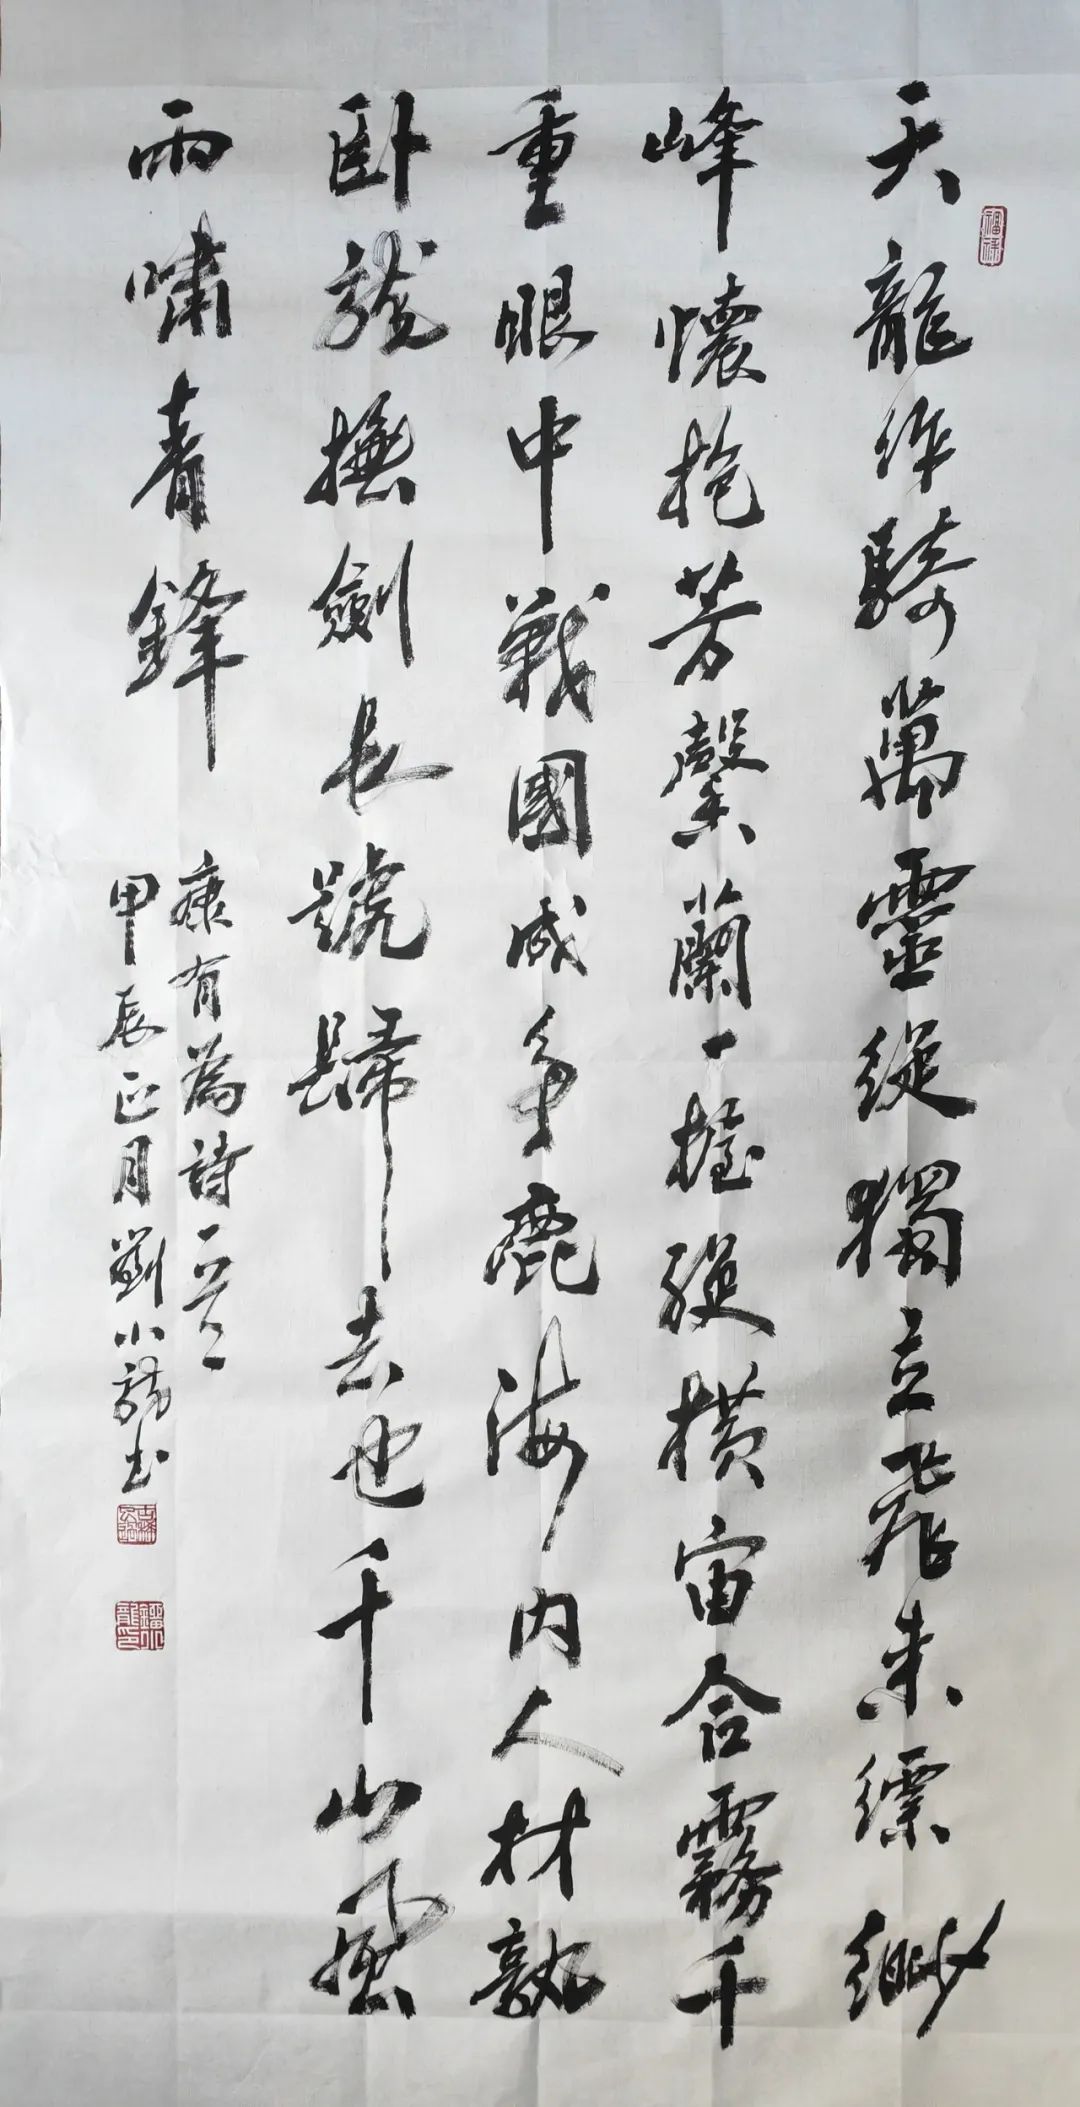 天龍作騎萬靈從獨立飛來縹緲
峰懷抱芳馨蘭一握縱橫宙合霧千
重眼中戰國成爭鹿海內人材孰
臥龍撫劍長號歸去也千山風
雨嘯青鋒
康有為詩一首
甲辰正月劉小龍書